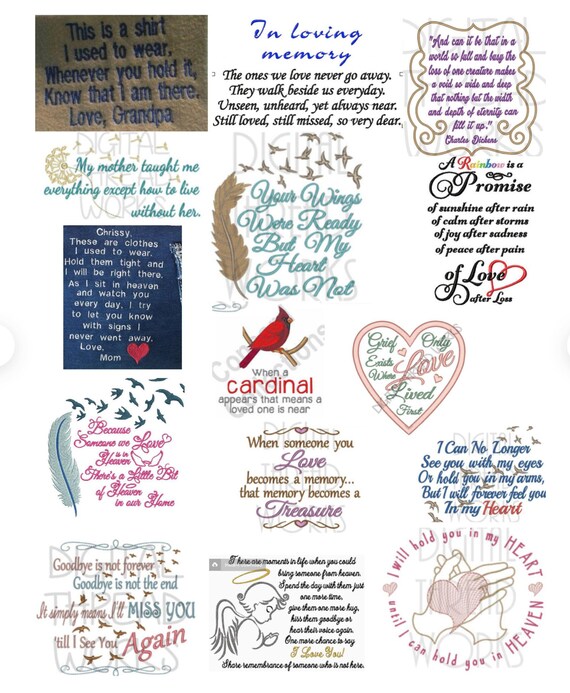 This is a shirt
I used to wear,
Whenever you hold it,
Know that I am there.
Love, Grandpa
In loving
memory
The ones we love never go away.
They walk beside us everyday.
Unseen, unheard, yet always near.
Still loved, still missed, so very dear.
"And can it be that in a
world so full and busy the
loss of one creature makes
a void so wide and deep
that nothing but the width
and depth of eternity can
fill it up."
Charles Dickens
My mother taught me
everything except how to live
without her.
Your Wings
Were Ready
But My
Heart
Was Not
A Rainbow is a
Promise
of sunshine after rain
of calm after storms
of joy after sadness
of peace after pain
of Love
after Loss
Chrissy,
These are clothes
I used to wear.
Hold them tight and
I will be right there.
As I sit in heaven
and watch you
every day, I try
to let you know
with signs I
never went away.
Love,
Mom
When a
cardinal
appears that means a
loved one is near
Grief Only
Exists
Where Love
Lived
First
Because
Someone we Love
is in
Heaven
There's a Little Bit
of Heaven
in our Home
When someone you
Love
becomes a memory...
that memory becomes a
Treasure
I Can No Longer
See you with my eyes
Or hold you in my arms,
But I will forever feel you
In my Heart
Goodbye is not forever
Goodbye is not the end
It simply means I'll MISS YOU
'till I See You Again
There are moments in life when you could
bring someone from heaven.
Spend the day with them just
one more time,
give them one more hug,
kiss them goodbye or
hear their voice again.
One more chance to say
I Love You!
Share remembrance of someone who is not here.
I will hold you in my HEART
until I can hold you in HEAVEN
DIGITAL
THREAD
WORKS